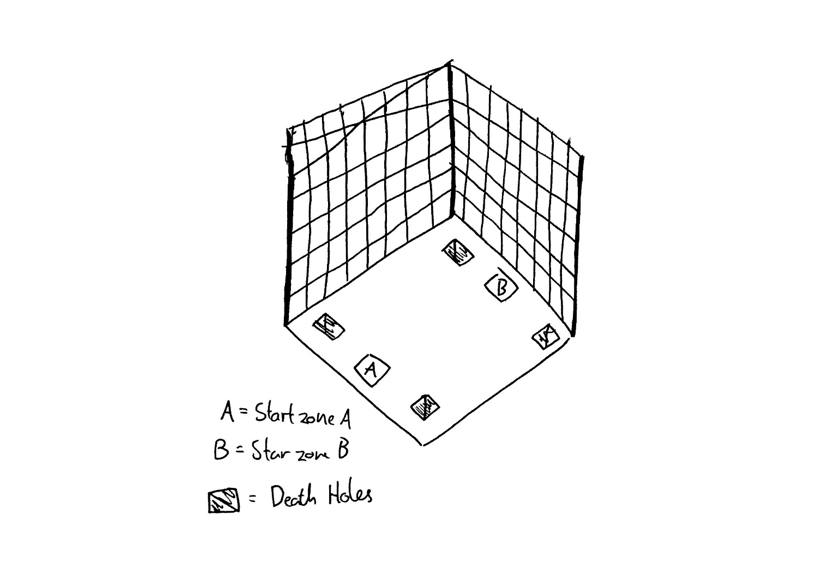 B
A
A = Start zone A
B = Star zone B
= Death Holes